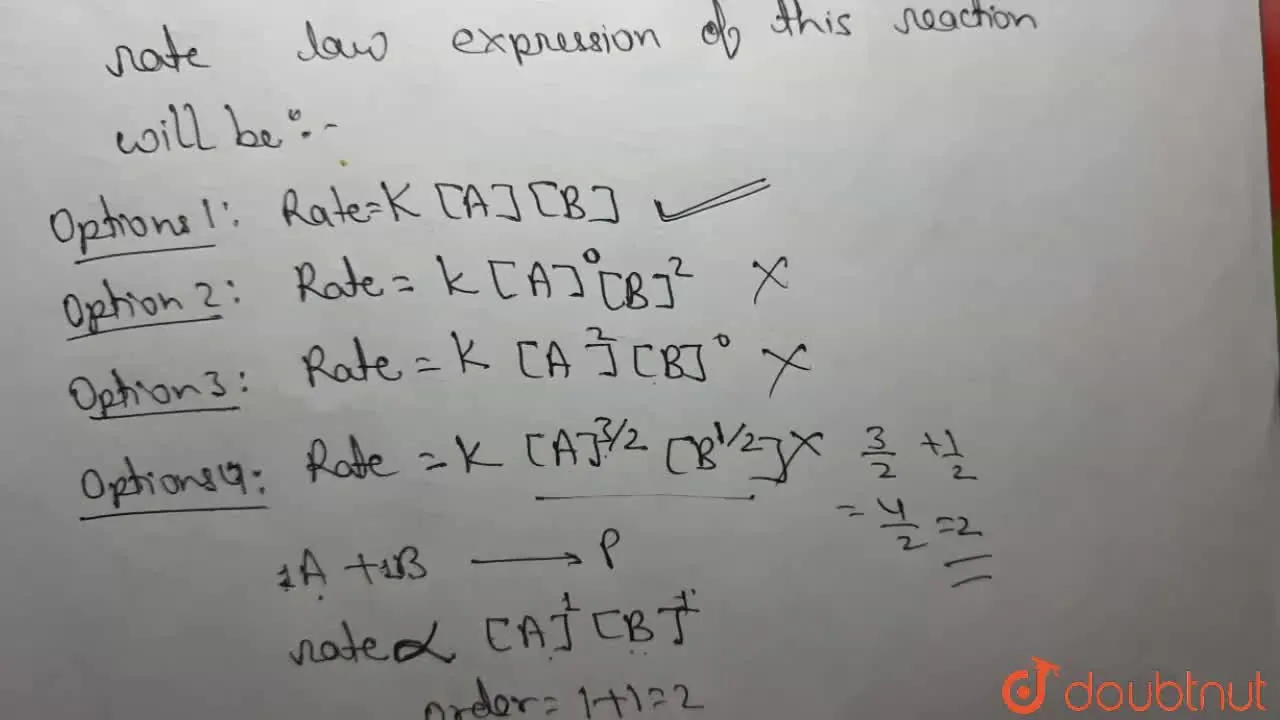 rate law expression of this reaction
will be :-
Options 1: Rate=K [A][B] ✓
Option 2: Rate = K [A]⁰[B]² X
Option 3: Rate = K [A²][B]⁰ X
Options 4: Rate = K [A]^3/2 [B^1/2] X 3/2 + 1/2
= 4/2 = 2
1A + 1B ⟶ P
rate ∝ [A]¹[B]¹
order = 1+1=2
doubtnut